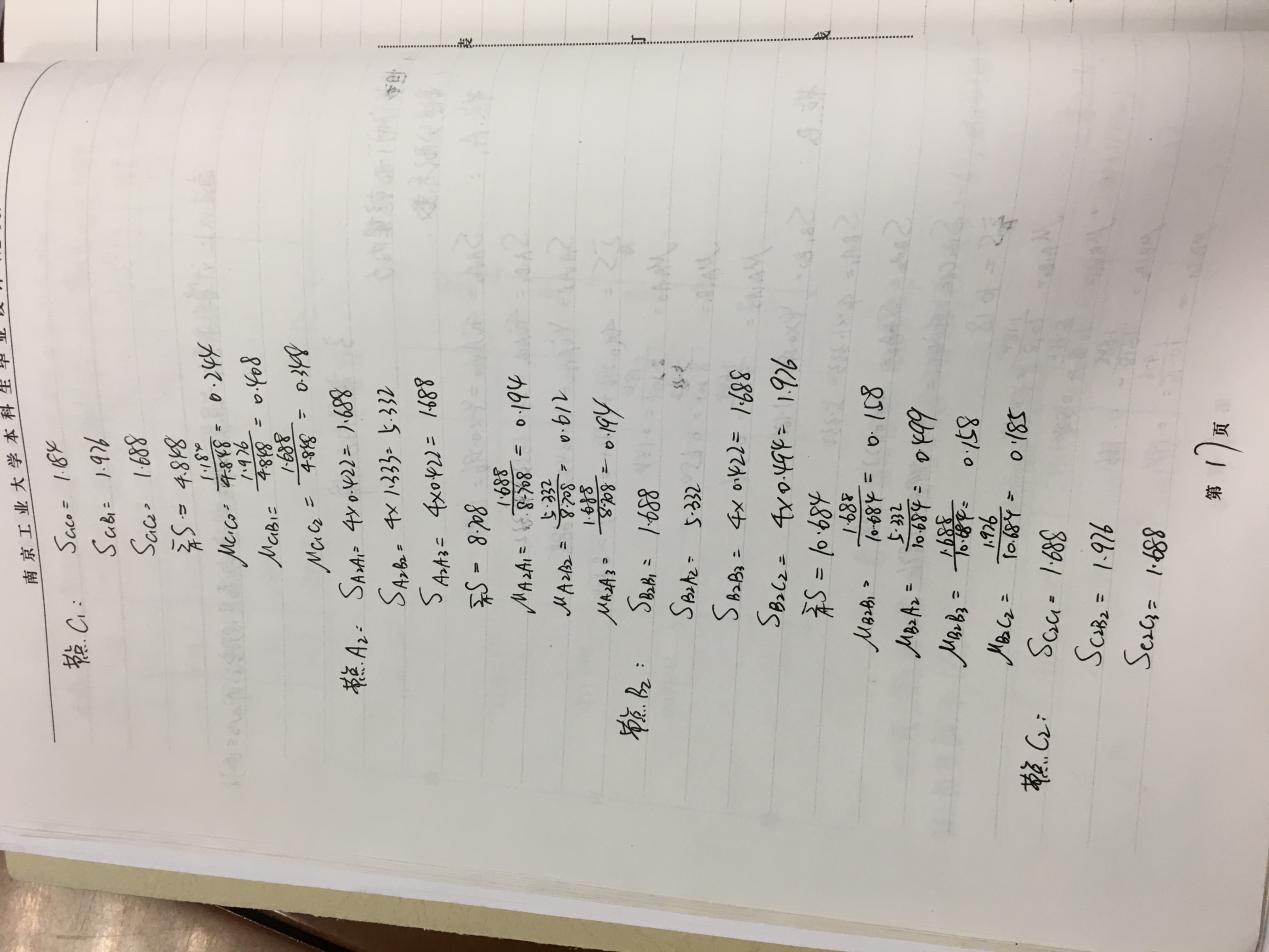 南京工业大学本科生毕业设计
节点C1: SC1C0 = 1.184
SC1B1 = 1.976
SC1C2 = 1.688
∑S = 4.848
μC1C0 = 1.184/4.848 = 0.244
μC1B1 = 1.976/4.848 = 0.408
μC1C2 = 1.688/4.848 = 0.348
节点A2: SA2A1 = 4×0.422 = 1.688
SA2B2 = 4×1.333 = 5.332
SA2A3 = 4×0.422 = 1.688
∑S = 8.708
μA2A1 = 1.688/8.708 = 0.194
μA2B2 = 5.332/8.708 = 0.612
μA2A3 = 1.688/8.708 = 0.194
节点B2: SB2B1 = 1.688
SB2A2 = 5.332
SB2B3 = 4×0.422 = 1.688
SB2C2 = 4×0.494 = 1.976
∑S = 10.684
μB2B1 = 1.688/10.684 = 0.158
μB2A2 = 5.332/10.684 = 0.499
μB2B3 = 1.688/10.684 = 0.158
μB2C2 = 1.976/10.684 = 0.185
节点C2: SC2C1 = 1.688
SC2B2 = 1.976
SC2C3 = 1.688
第 17 页
装 订 线